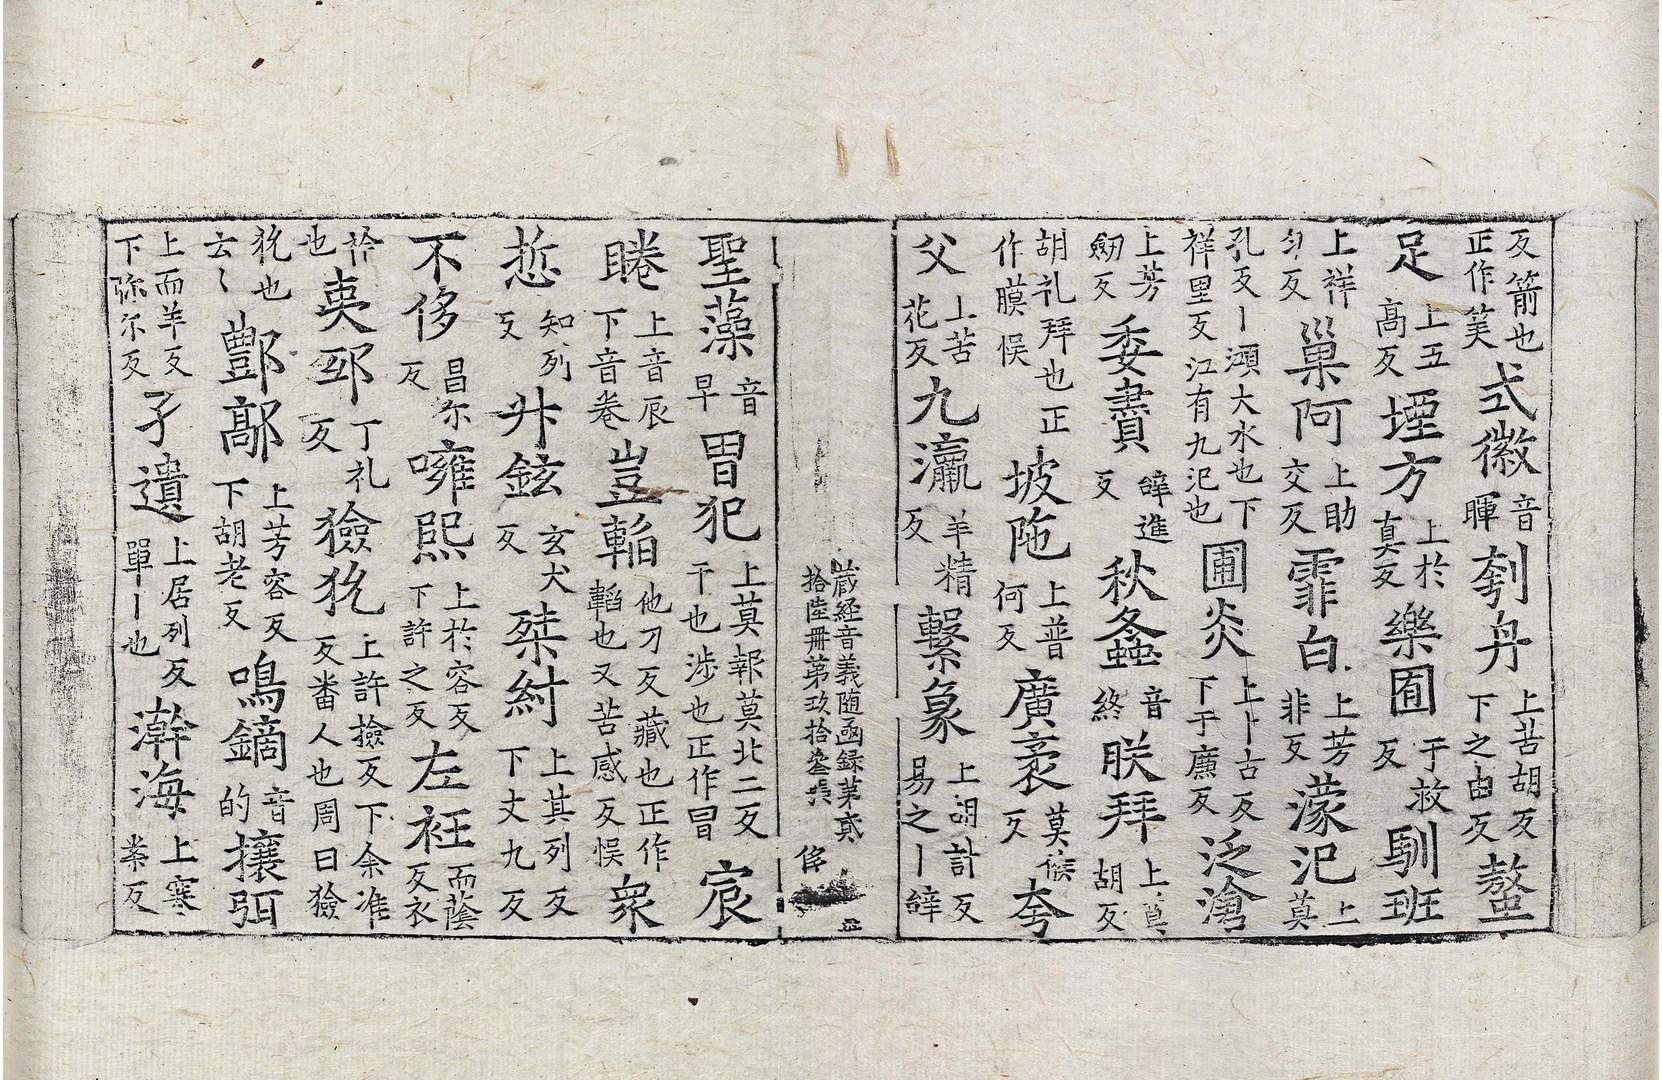 反箭也正作笑式徽音暉刳舟上苦胡反下之由反螯
足上五高反堙方上於真反樂囿于救反馴班
上祥匀反巢阿上助交反霏白上芳非反濛汜上莫
孔反丨澒大水也下祥里反江有九汜也圃炎上卜古反下于廉反泛滄
上芳劒反委賮辝進反秋螽音終朕拜上莫胡反
胡礼拜也正作膜悮坡陁上普何反廣袤莫候反夸
父上苦花反九瀛羊精反繫象上胡計反易之丨辝
蔵經音義随函録第貳
拾陸冊第玖拾叁張
聖藻音早冒犯上莫報莫北二反干也涉也正作冒宸
睠上音辰下音巻豈他刀反藏也正作韜也又苦感反悮衆
悊知列反廾鉉玄犬反桀紂上其列反下丈九反
不侈昌尓反噰熙上於容反下許之反左衽而蔭反衣
衿也丁礼反獫狁上許撿反下余准反畨人也周曰獫
狁也云〻酆鄗上芳容反下胡老反鳴鏑音的攘弭
上而羊反下弥尓反孑遺上居列反單丨也瀚海上寒案反